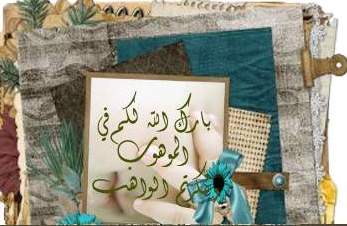 بارك الله لكم في
الموهوب
الواهب